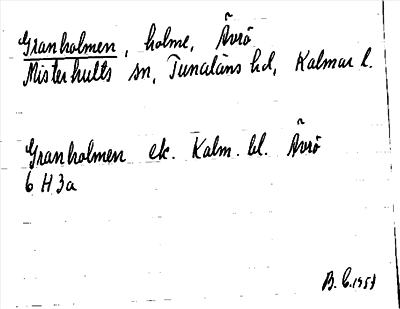 Granholmen, holme, Ävrö
Misterhults sn, Tunaläns hd, Kalmar l.
Granholmen ek. Kalm. bl. Ävrö
6 H 3a
B. C. 1951